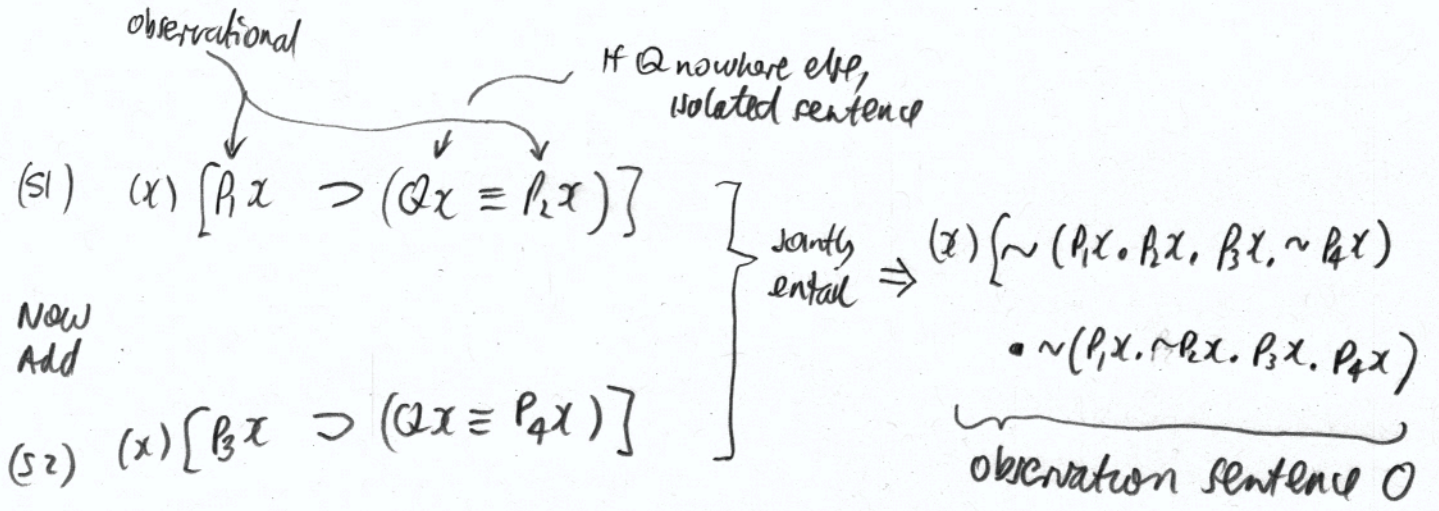 observational
If Q nowhere else,
isolated sentence
(S1) (x) [P₁x ⊃ (Qx ≡ P₂x)]
Now
Add
(S2) (x) [P₃x ⊃ (Qx ≡ P₄x)]
Jointly
entail ⇒
(x) [~ (P₁x . P₂x . P₃x . ~ P₄x)
. ~ (P₁x . ~P₂x . P₃x . P₄x)
observation sentence O